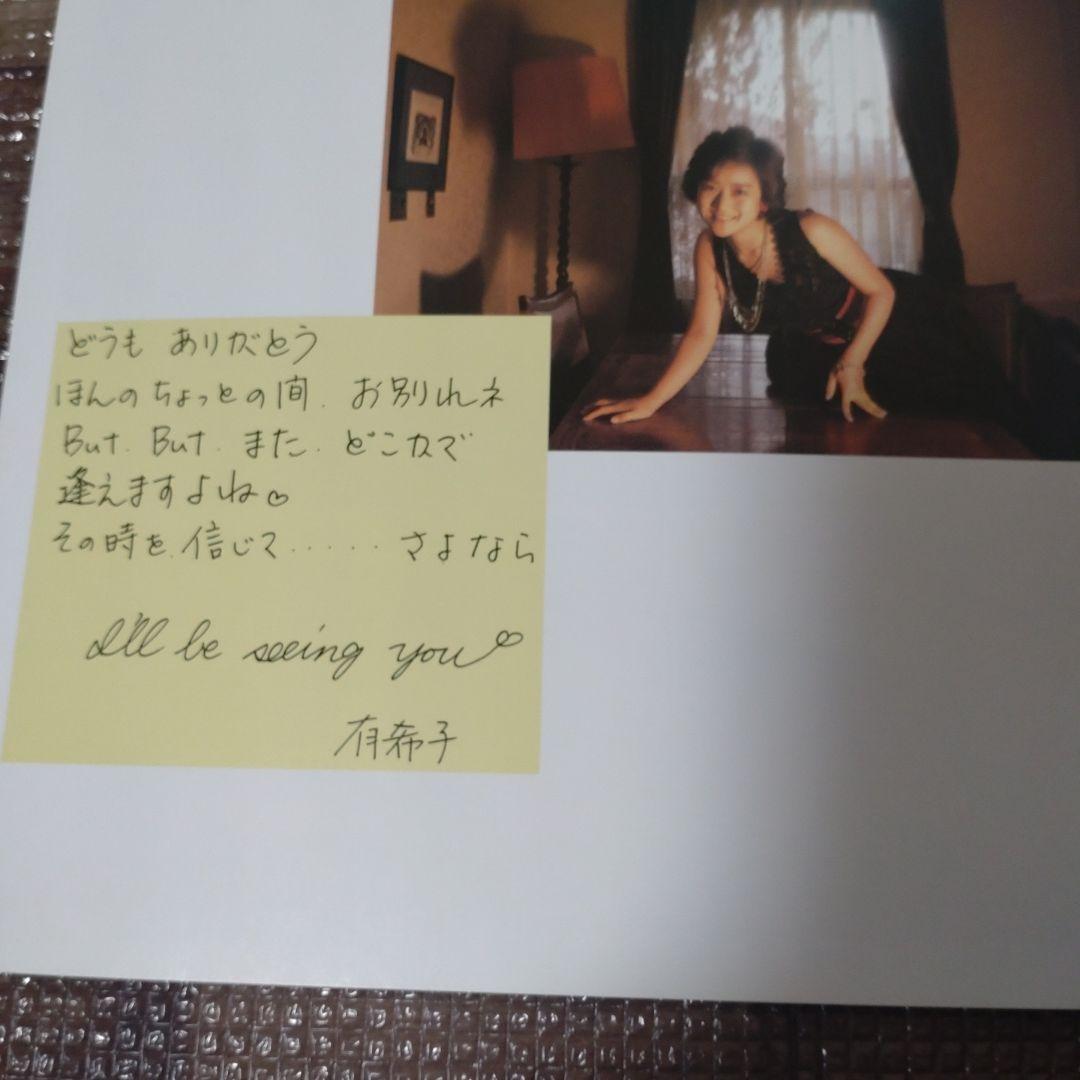 どうも ありがとう
ほんのちょっとの間. お別れネ
But. But. また. どこかで
逢えますよね♡
その時を.信じて..... さよなら
I'll be seeing you♡
有希子